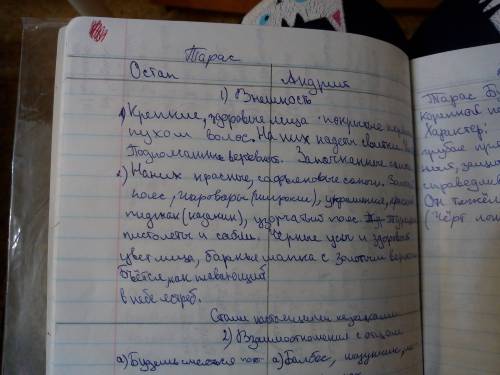 Тарас
Остап Андрий
1) Внешность
1) Крепкие, здоровые лица покрытые первым
пухом волос. На них надеты свитки.
Запачканные сапоги
2) На них красные, сафьяновые сапоги. Золотой
пояс, шаровары (широкие), украшения, красный
пиджак (казакин), узорчатый пояс.
пистолеты и сабли. Чёрные усы и здоровый
цвет лица, бараньи шапка с золотым верхом
Бьётся, как плавающий
в небе ястреб.
Стали настоящими казаками
2) Взаимоотношения с отцом
а) Будешь смеяться а) Балбес, мазунчик,
Тарас Бу
коренной по
Характер:
грубая пря
справедлив
Он тяжёл
(Чёрт